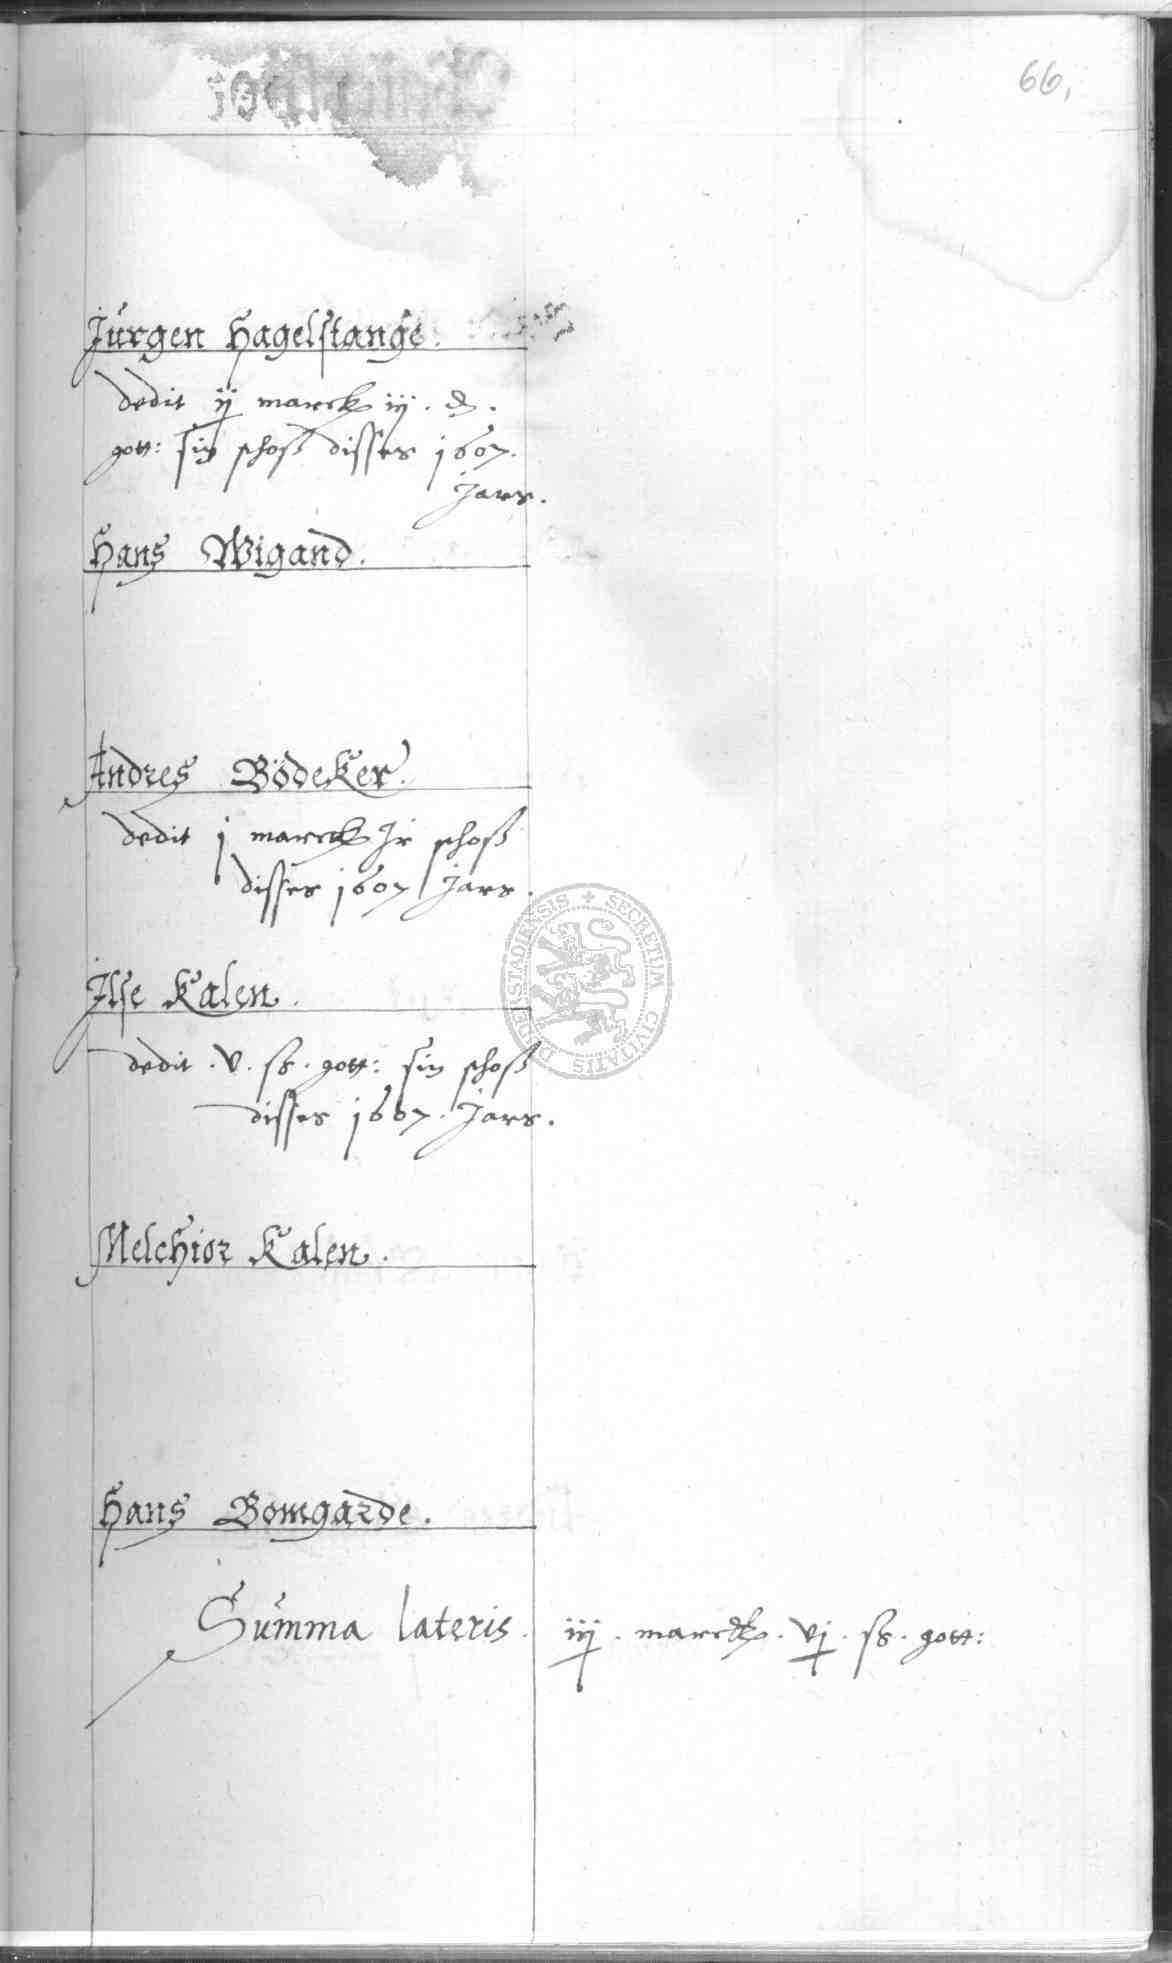 66.
Jürgen Hagelstange.
dedit ij marck iij. ₰.
gott: sin schoß disses 1607.
Jars.
Hans Wigand.
Andres Bödeker.
dedit j marck Ir schoß
disses 1607 Jars.
Ilse Kalen.
dedit . v. ß. gott: sin schoß
disses 1607. Jars.
Melchior Kalen.
Hans Bomgarde.
Summa lateris. iij . marck . vj . ß . gott:
SECRETUM CIVITATIS DUDERSTADIENSIS